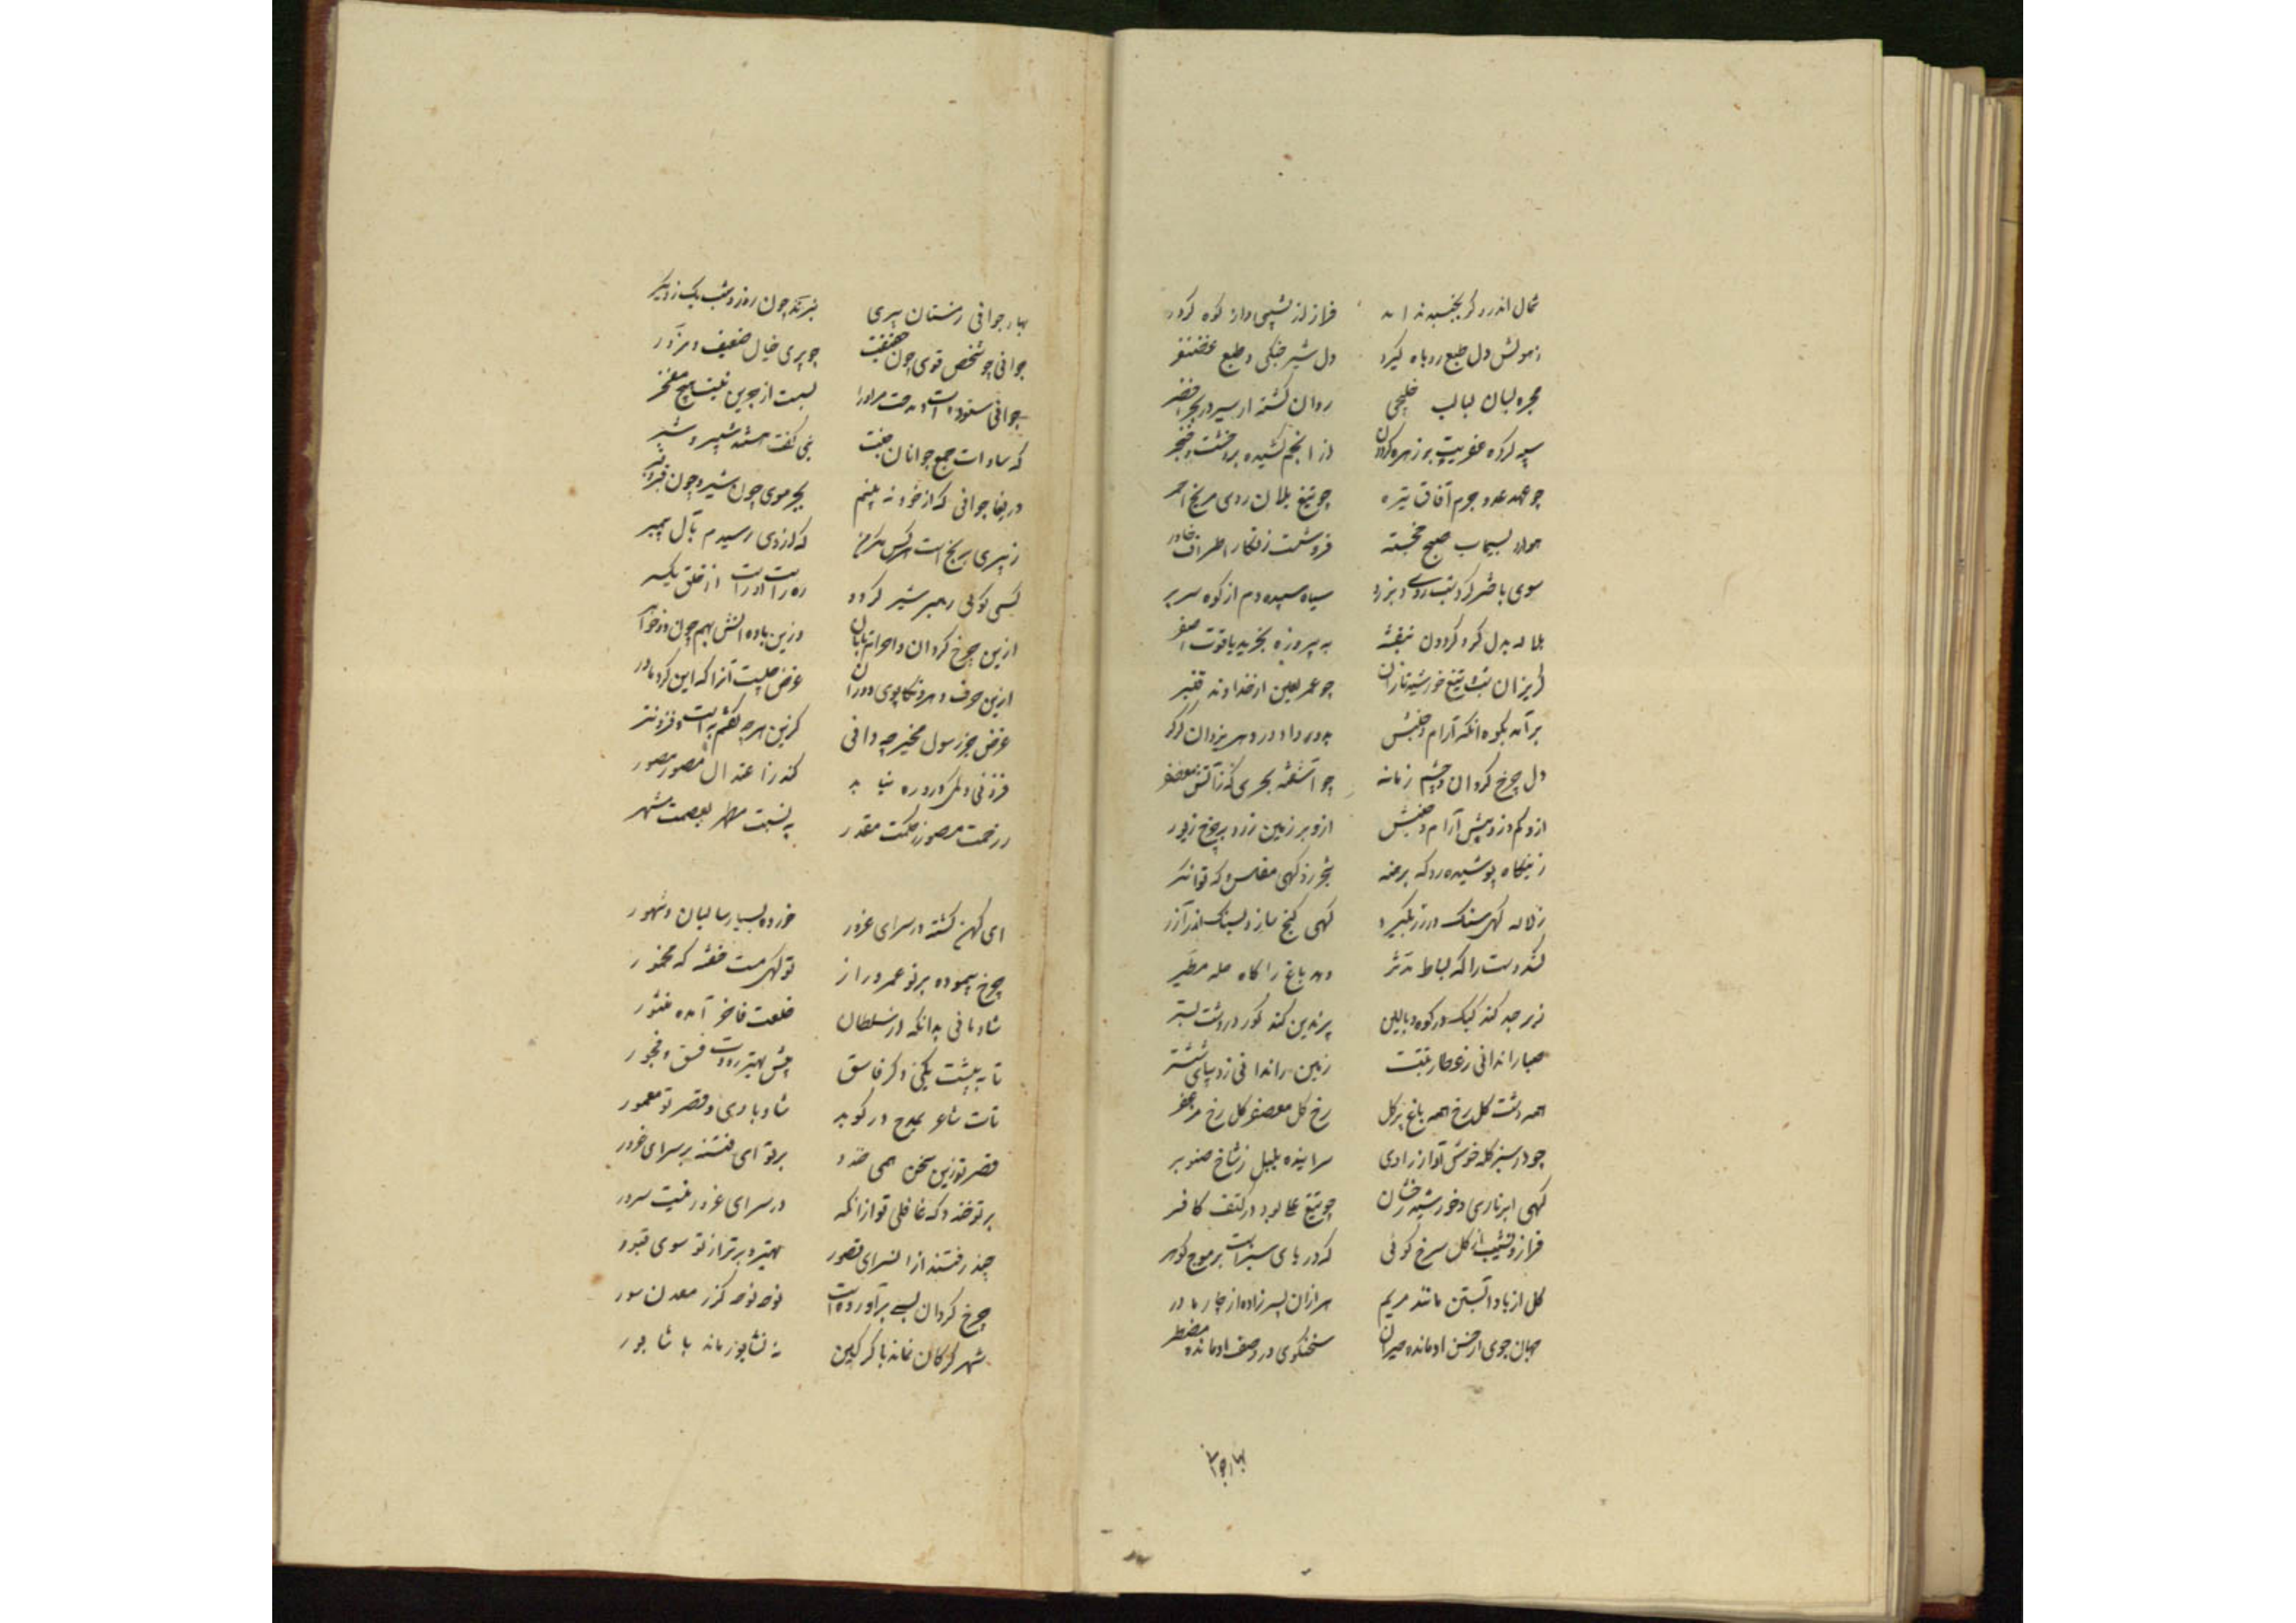 شمال اندرو کر بجنبد فراز از نشیبی و از کوه کردر
زهولش دل طبع روباه کیرد دل شیر جنکی و طبع غضنفر
مجره لبالب خلیجی روان کشته از سیر در بحر اخضر
سپه کرده عفریت بر زهره کردون از انجم کشیده برو خشت و خنجر
چو عهد عدو جرم آفاق تیره چو تیغ یلان روی مریخ احمر
هوا را بسیماب صبح خجسته فرو شست زنکار اطراف خاور
سوی باختر کرد شب روی و بزد سپاه سپیده دم از کوه سر بر
بلاله بدل کرد کردون بنفشه به پیروزه بخرید یاقوت اصفر
کریزان شب و تیغ خورشید تازان چو عمر لعین از خداوند قنبر
برآمد بکوه آنکه آرام و جنبش بدو داد در دهر یزدان کرکر
دل چرخ کردان و چشم زمانه چو آشفته بحری که زآتش معصفر
ازو کم و زو بیش آرام و جنبش ازو بر زمین زرد بر چرخ زیور
زمین کاه پوشیده زو که برهنه شجر زو کهی مفلس و که توانکر
ز لاله کهی سنک در زر بکیرد کهی کنج سازد بسنک اندر آذر
کند دست را که بساط مدثر دهد باغ را کاه حله مطیر
زبرجد کند کبک در کوه بالین پرندین کند کور در دشت بستر
صبا را ندانی ز عطار تبت زمین را ندانی ز دیبای ششتر
همه دشت کلرخ همه باغ پر کل رخ کل معصفر کل رخ مزعفر
چو در سبز کله خوش آواز راوی سراینده بلبل ز شاخ صنوبر
کهی ابر تاری و خورشید رخشان چو تیغ علی بود در کتف کافر
فراز و نشیب از کل سرخ کوئی که دریای سبزست بر موج کوهر
کل از باد آبستن مانند مریم هزاران پسر زاده از چار مادر
جهان جوی از حسن او مانده حیران سخنکوی در وصف او مانده مضطر
بهار جوانی
بهار جوانی زمستان پیری بنزند چون روز و شب یک ز دیکر
جوانی چو شخص قوی چون حقیقت چو پیری خیال ضعیف و مزور
جوانی ستوده است و مدحت مر او را بست از بجز این نیستش هیچ مفخر
که سادات جمع جوانان جنت نبی کفت هستند شبیر و شبر
دریغا جوانی که از خود نه بینم بجز موی چون شیر و چون قیر دفتر
ز پیری برنج است هر کس مکر من که از وی رسیدم بآل پیمبر
کسی کو کی رهبر شیر کردد ره راست او راست از خلق یکسر
ازین چرخ کردان و احوال تابان وزین باد و آتش بهم چون دو خواهر
ازین حرف و هر دو تکاپوی دوران غرض چیست آنرا که این کرد مادر
غرض جز رسول مخیر چه دانی کزین هر چه کفتم به است و فزونتر
فزونی و کرد ره نیابد کند زاعتدال مصور مصور
ز رحمت مصور ز حکمت مقدر به نسبت مطهر بعصمت مشهر
ای کهن کشته در سرای غرور خورده بسیار سالیان و شهور
چرخ پیموده بر تو عمر دراز تو کهی مست خفته که مخمور
شادمانی بدانکه از سلطان خلعت فاخر آمده منشور
تا به پشت یکی و کر فاسق پیش بهتر رود فسق و فجور
تات شاعر بمدح در کوید شاد بادی و قصر تو معمور
قصر تو زین سخن همی خندد بر تو ای فتنه بر سرای غرور
بر تو خندد که غافلی تو از آنکه در سرای غرور نیست سرور
چند رفتند از آن سرای قصور بهتر و برتر از تو سوی قبور
چرخ کردان بسی برآورده است نوحه نوحه کزر معدن سور
شهر کرکان نماند با کرکین نه نشابور ماند با شابور